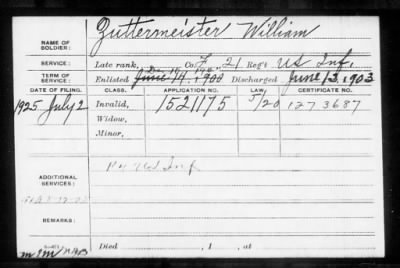 NAME OF SOLDIER: Zuttermeister William
SERVICE: Late rank, Co. F, 21 Reg't US Inf.
TERM OF SERVICE: Enlisted June 14, 1900 Discharged June 13, 1903
DATE OF FILING. CLASS. APPLICATION NO. LAW. CERTIFICATE NO.
1925 July 2 Invalid, 1521175 5/20 1273687
Widow,
Minor,
ADDITIONAL SERVICES: US Inf
REMARKS:
Died , 1 , at